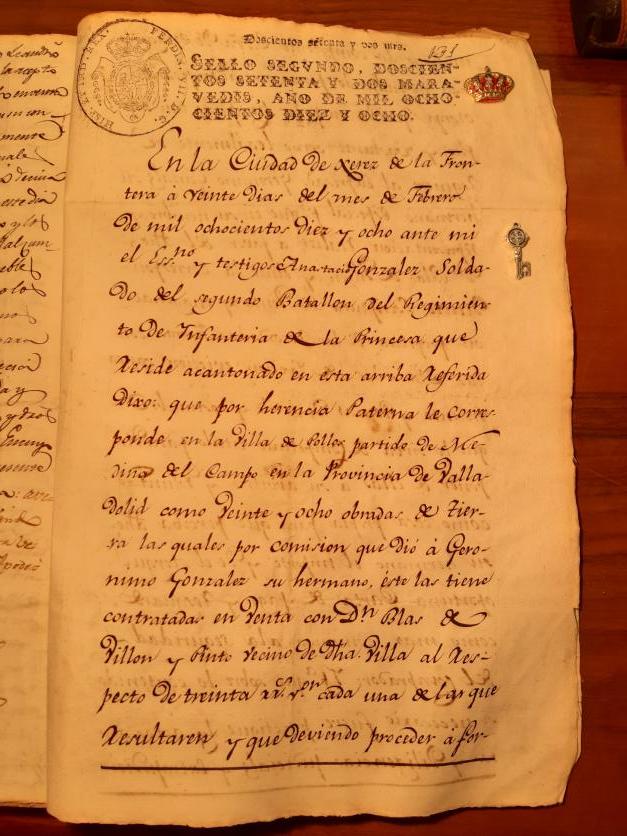 Doscientos setenta y dos mrs.
SELLO SEGVNDO, DOSCIEN-
TOS SETENTA Y DOS MARA-
VEDIS, AÑO DE MIL OCHO-
CIENTOS DIEZ Y OCHO.
En la Ciudad de Xerez de la Fron-
tera á veinte dias del mes de Febrero
de mil ochocientos diez y ocho ante mi
el Ess.no y testigos Anastacio Gonzalez Solda-
do del segundo Batallon del Regimien-
to de Infanteria de la Princesa que
Reside acantonado en esta arriba Referida
Dixo: que por herencia Paterna le corres-
ponde en la Villa de Pollos partido de Me-
dina del Campo en la Provincia de Valla-
dolid como veinte y ocho obradas de tier-
ra las quales por comision que dió á Gero-
nimo Gonzalez su hermano, éste las tiene
contratadas en venta con Dn Blas de
Villon y Pinto vecino de dha. Villa al Res-
pecto de treinta rs. vn cada una de las que
Resultaren y que deviendo proceder á for-